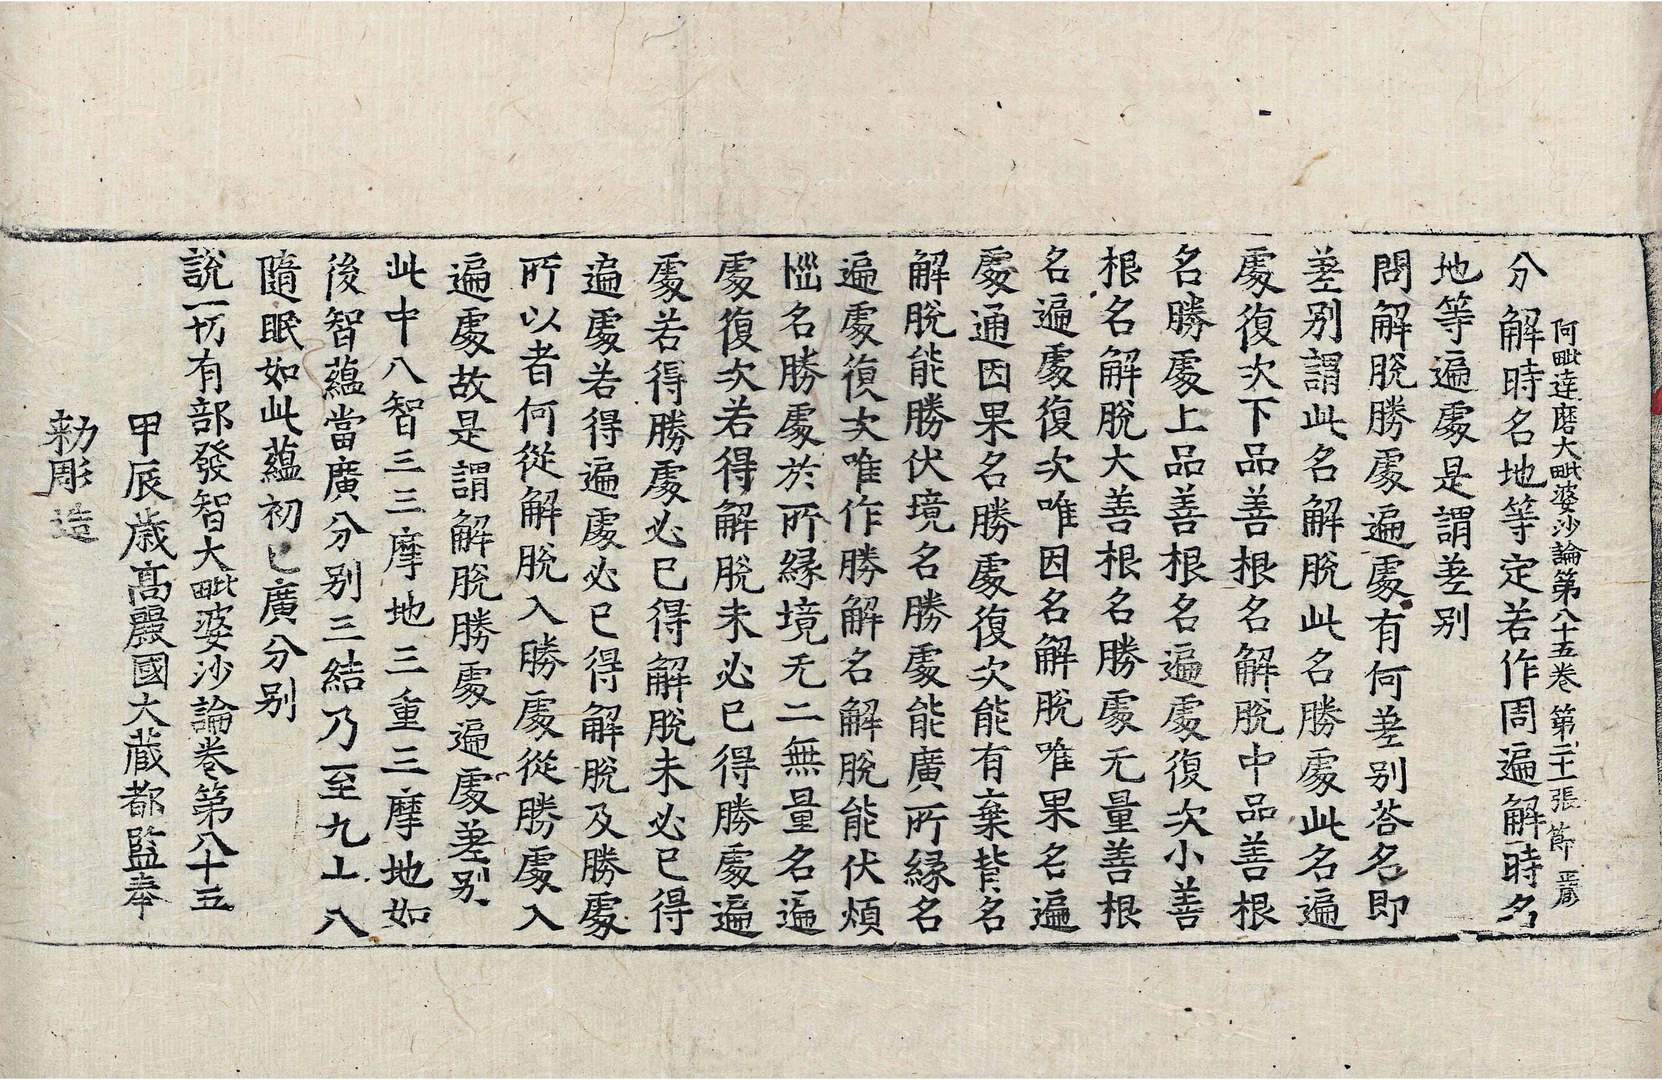 阿毗達磨大毗婆沙論第八十五卷 第二十一張 節
分解時名地等定若作周遍解時名
地等遍處是謂差別
問解脫勝處遍處有何差別荅名即
差別謂此名解脫此名勝處此名遍
處復次下品善根名解脫中品善根
名勝處上品善根名遍處復次小善
根名解脫大善根名勝處无量善根
名遍處復次唯因名解脫唯果名遍
處通因果名勝處復次能有棄背名
解脫能勝伏境名勝處能廣所緣名
遍處復次唯作勝解名解脫能伏煩
惱名勝處於所緣境无二無量名遍
處復次若得解脫未必已得勝處遍
處若得勝處必已得解脫未必已得
遍處若得遍處必已得解脫及勝處
所以者何從解脫入勝處從勝處入
遍處故是謂解脫勝處遍處差別
此中八智三三摩地三重三摩地如
後智蘊當廣分別三結乃至九十八
隨眠如此蘊初已廣分別
說一切有部發智大毗婆沙論卷第八十五
甲辰歲高麗國大藏都監奉
勑彫造